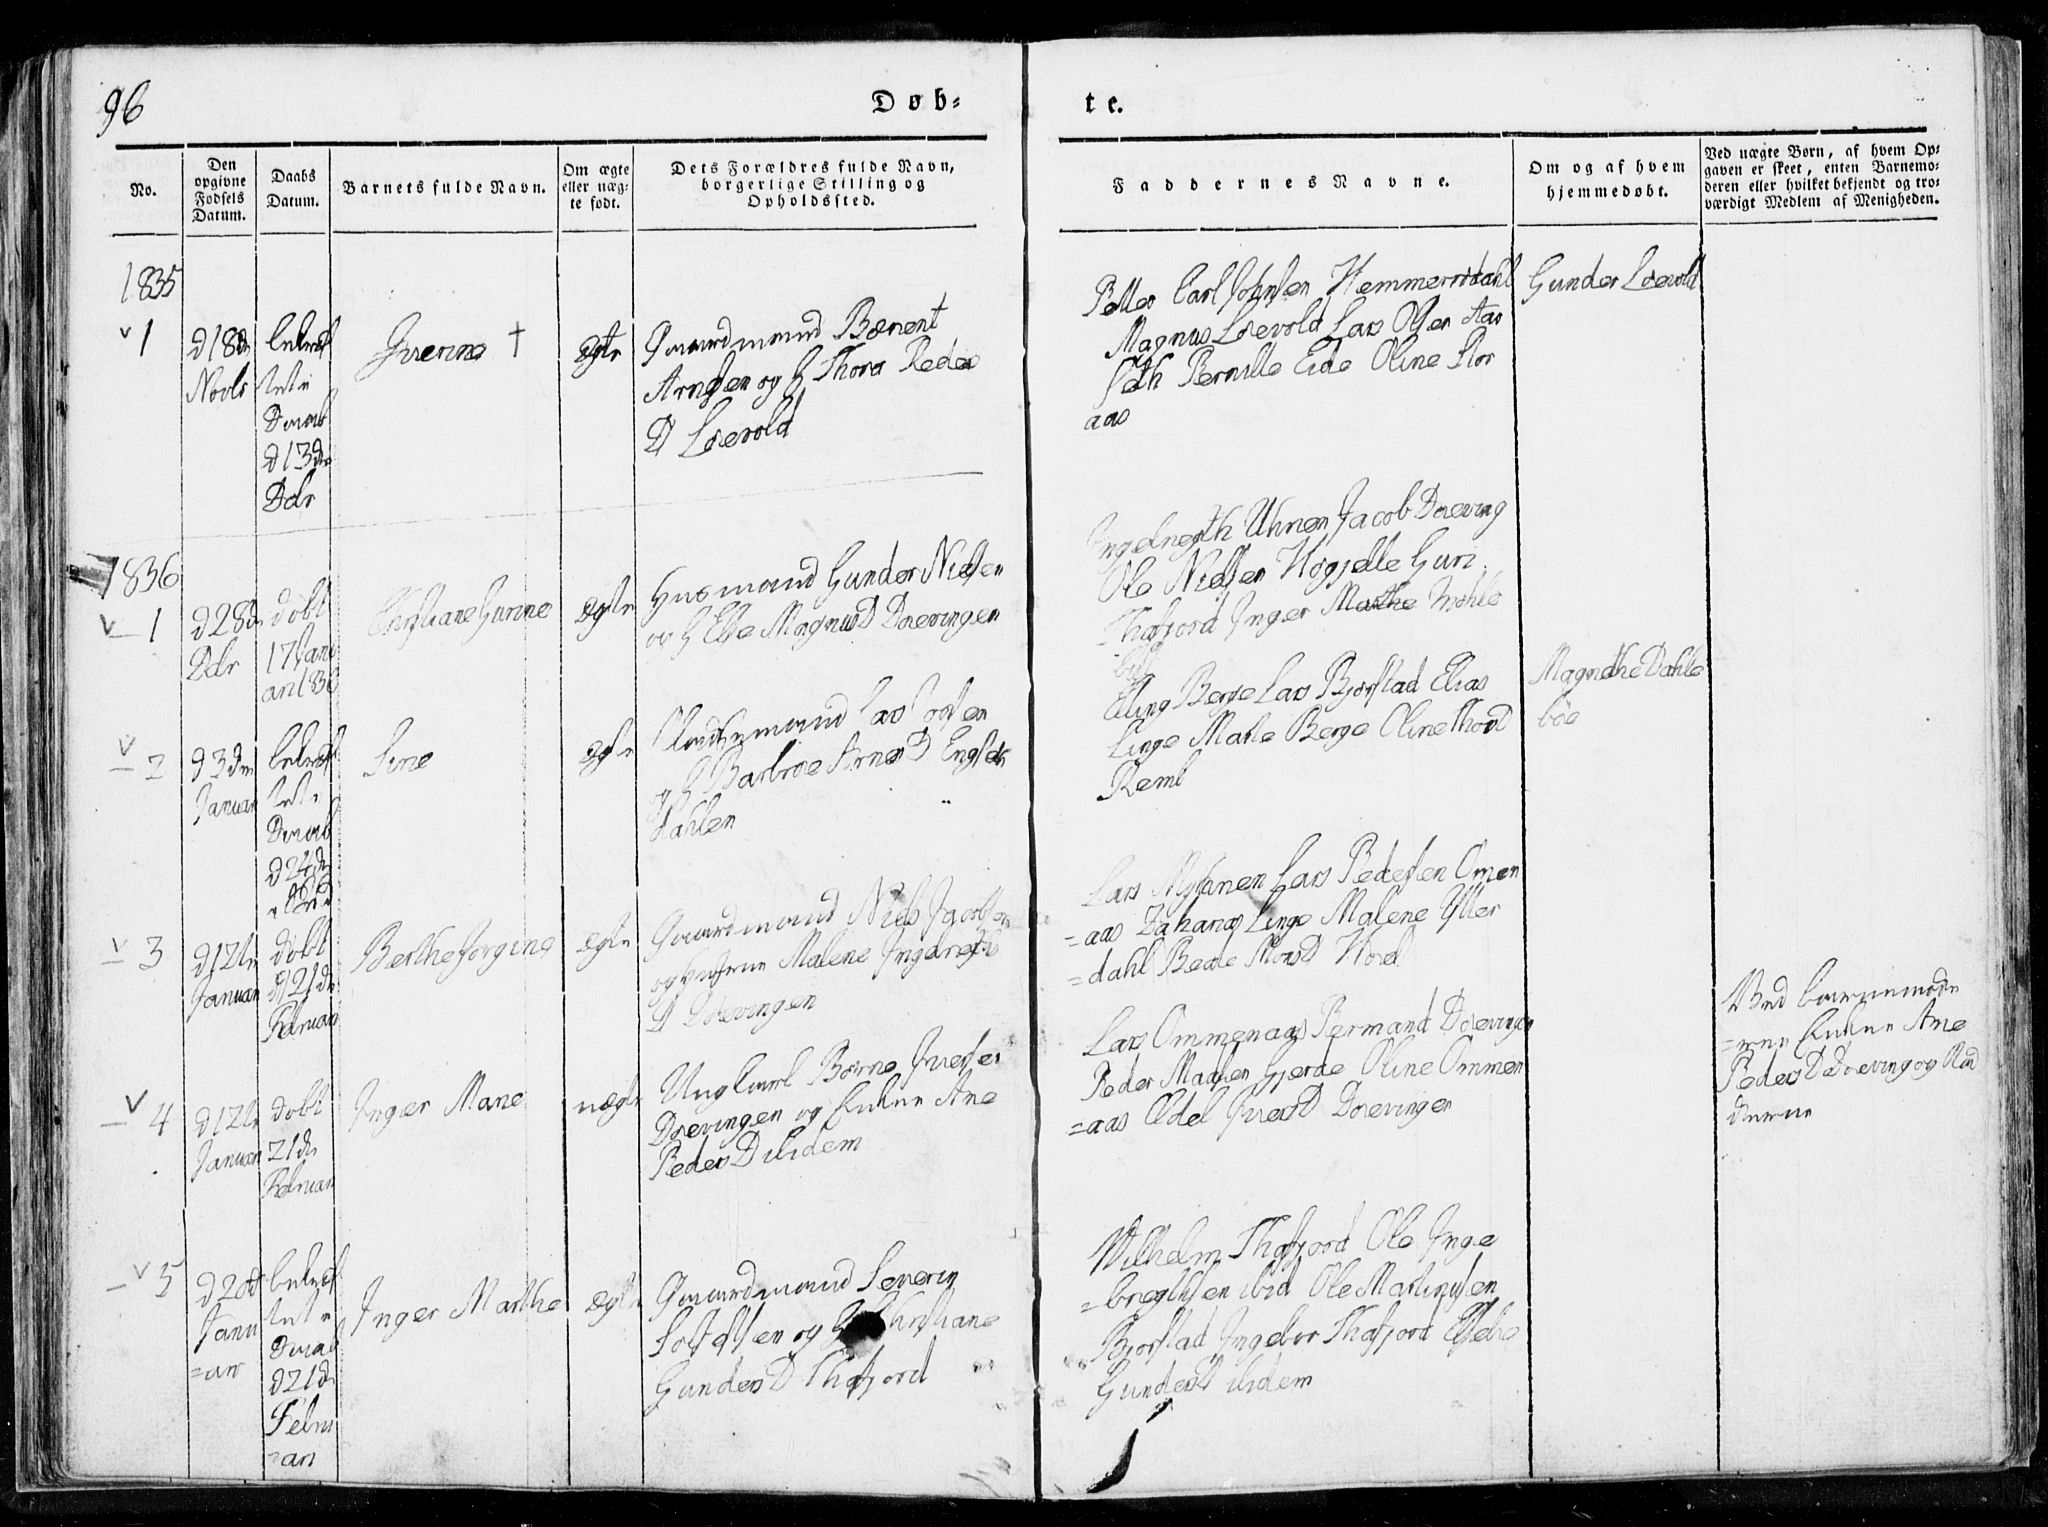 96
Døb-
te.
No.
Den
opgivne
Fødsels
Datum.
Daabs
Datum.
Barnets fulde Navn.
Om ægte
eller uæg-
te født.
Dets Forældres fulde Navn,
borgerlige Stilling og
Opholdssted.
Faddernes Navne.
Om og af hvem
hjemmedøbt.
Ved uægte Børn, af hvem Op-
gaven er skeet, enten Barnemo-
deren eller hvilket bekjendt og tro-
værdigt Medlem af Menigheden.
1835
v 1
d 18de
Novbr
bekræf
tet i
Daab
d 13de
Dcbr
Iverine †
Ægte
Gaardmand Bærent
Arnesen og H Thora Peder
D Løevold
Petter Carl Johnsen Hemmersdahl
Magnus Løevold Lars Olsen Aar
seth Pernille Eide Oline Stor
aas
Gunder Løevold
1836
v 1
d 28de
Dcbr
døbt
17 Janu
ari 1836
Christiane Gurine
Ægte
Husmand Gunder Nielsen
og H Else Magnus D Døevingen
Ingebregth Uhnen Jacob Døeving
Ole Nielsen Hogjelle Guri
Thafjord Inger Marthe
v 2
d 3de
Januar
bekræf
tet i
Daab
d 24de
Sine
Ægte
Lars
og H Barbroe Arne D Engset
dahlen
Elling Berge Lars Bjørstad Elias
Linge Marte Berge Oline Thor D
Reml
Magnethe Dahle
bøe
v 3
d 12te
Januar
døbt
d 21de
Februar
Berthe Jorgine
Ægte
Gaardmand Niels Jacobsen
og Hustrue Malene Ingebregts
D Døevingen
Lars Myhanen Lars Pedersen Omen
=aas Zakarias Linge Malene Ytter
=dahl Beate Mons D Hoel
v 4
d 12te
Januar
døbt
21de
Februar
Inger Mane
uægte
Ungkarl Børre Iversen
Døevingen og Enken Ane
Peders D ibidem
Lars Ommenaas Bermand Døevingen
Peder Madsen Gjerde Oline Ommen
=aas Edel Ivers D Døevingen
Ved Barnemode
=ren Enken Ane
Peders D Døeving og Fad
derne
v 5
d 20de
Janu
=ar
bekræf
tet i
Daab
d 21de
Febru
=ari
Inger Marthe
Ægte
Gaardmand Severin
og H Christiane
Gunders D Thafjord
Wilhelm Thafjord Ole Inge
=bregthsen ibid Ole Martinusen
Bjorstad Ingebor Thafjord
Gunders D ibidem